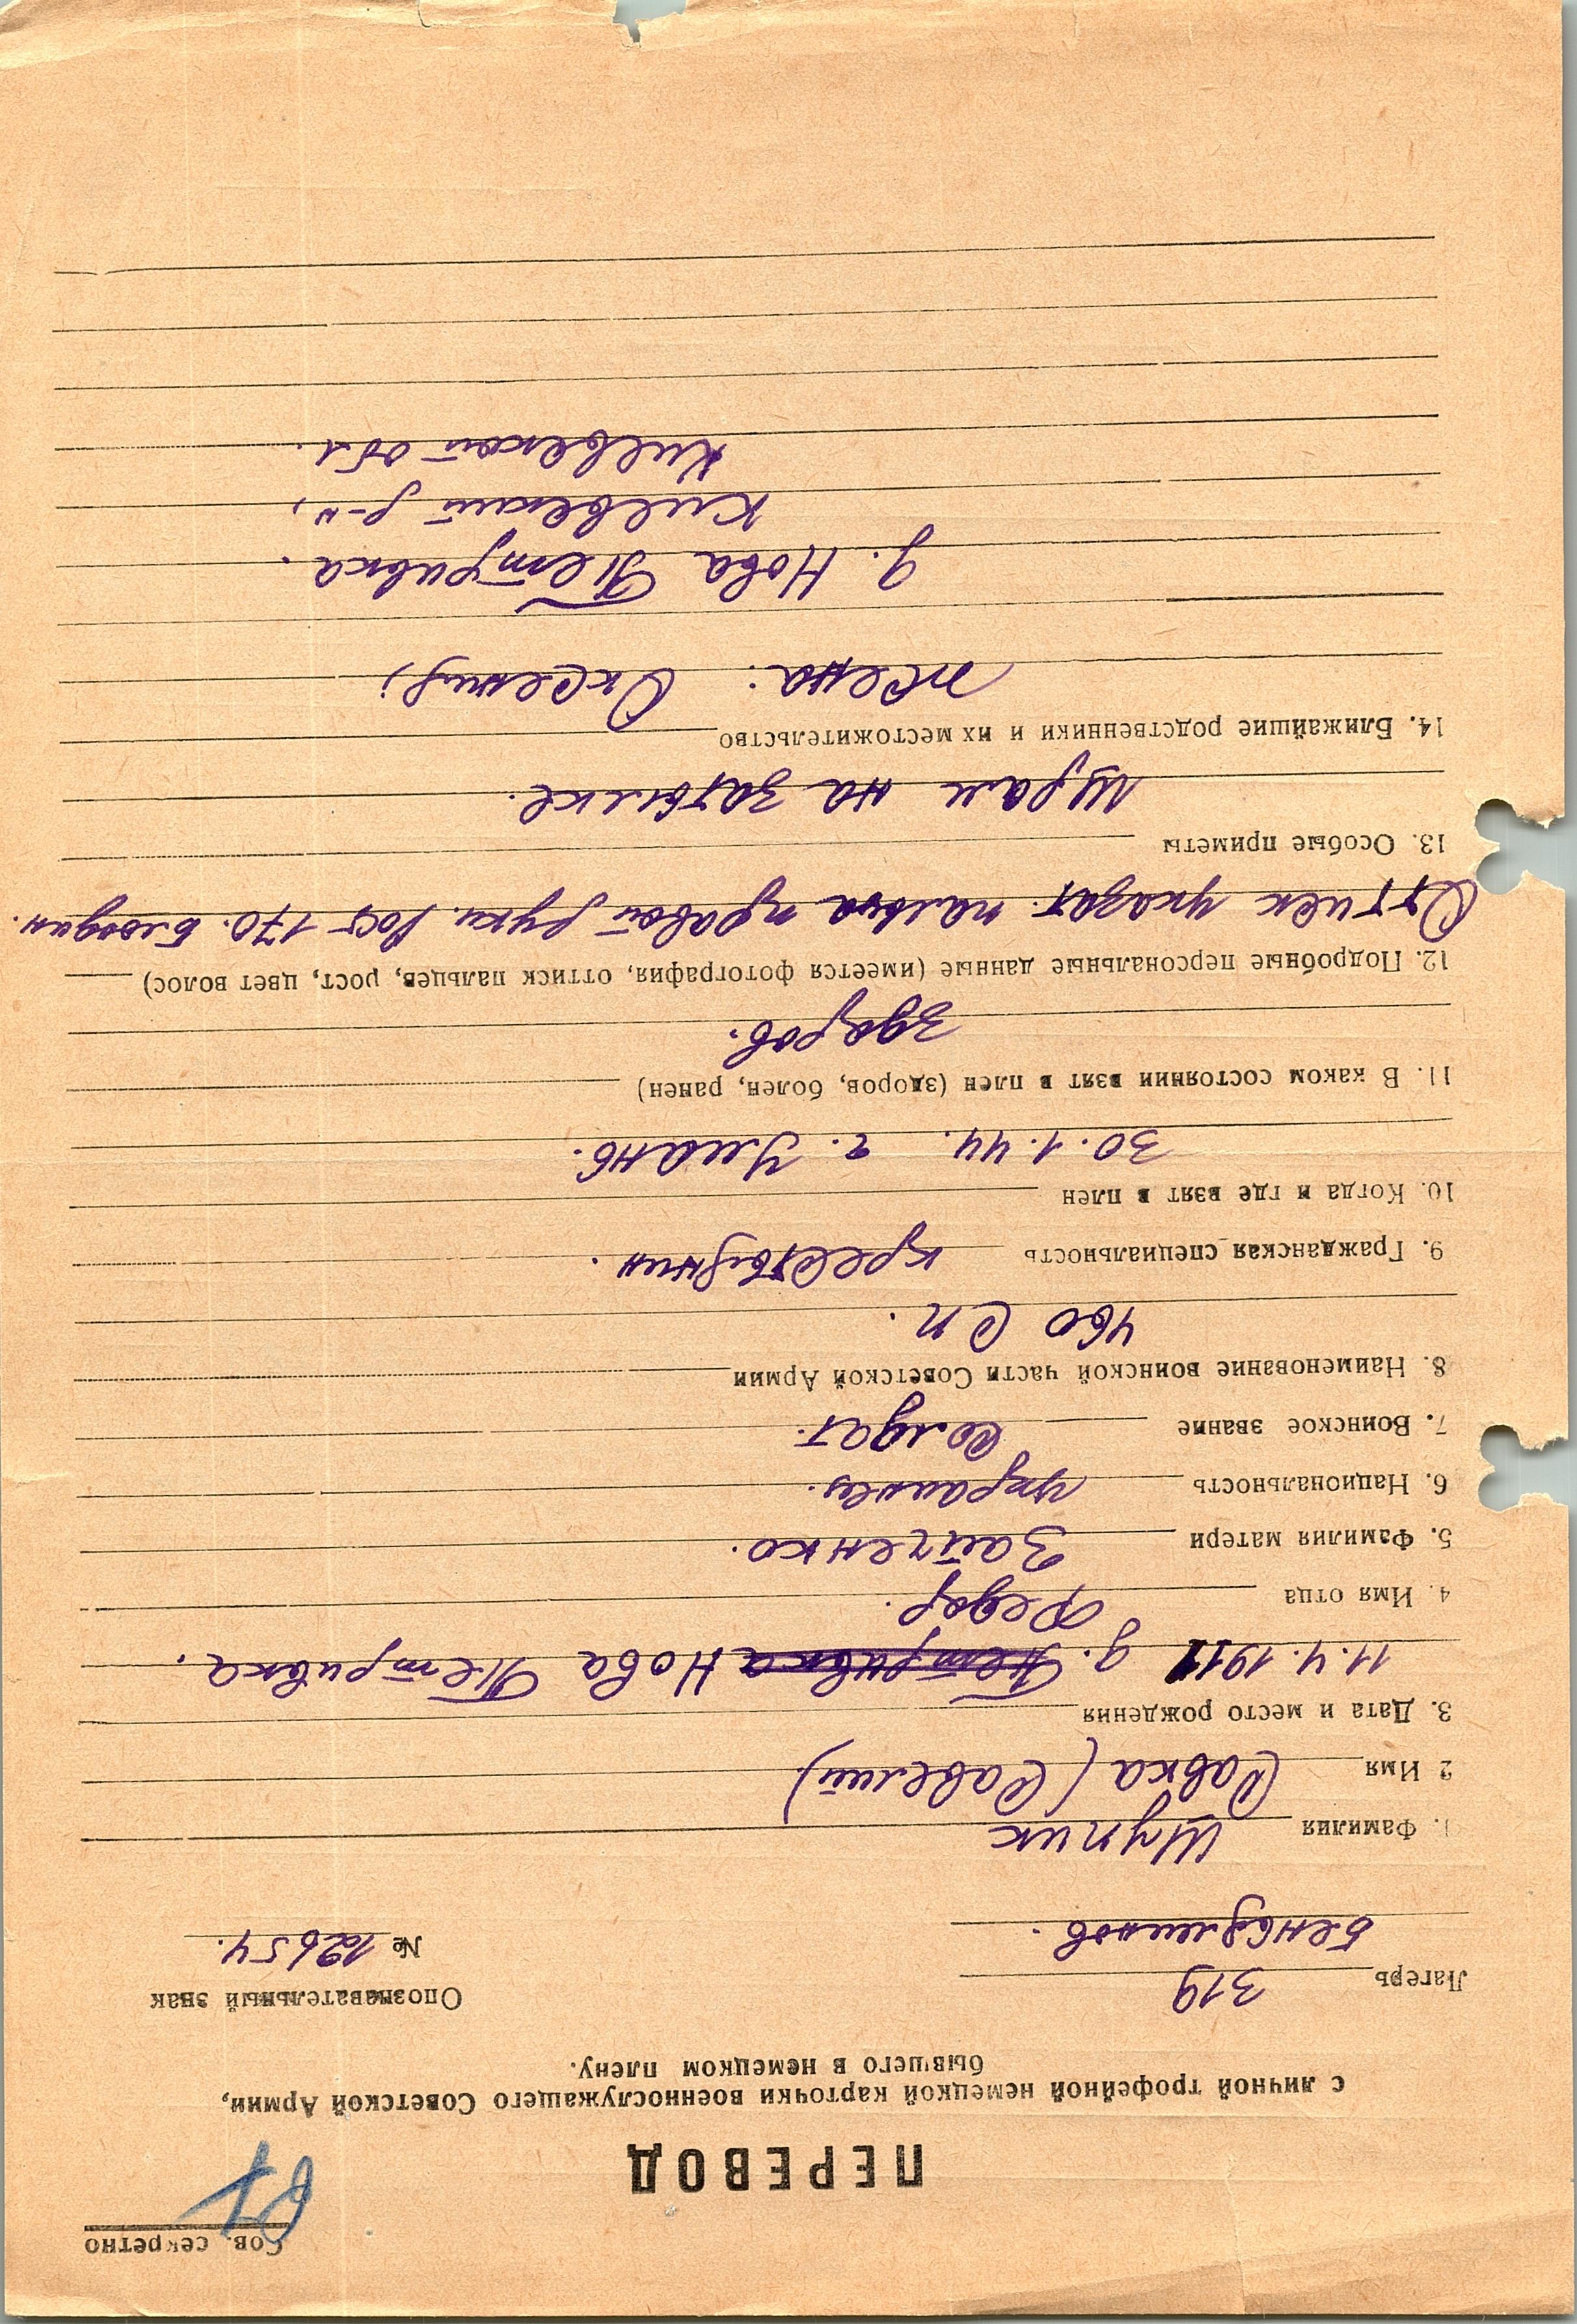 Сов. секретно
ПЕРЕВОД
с личной трофейной немецкой карточки военнослужащего Советской Армии,
бывшего в немецком плену.
Лагерь 319 Опознавательный знак
№ 12654.
1. Фамилия Шупик
2 Имя Савка (Савелий)
3. Дата и место рождения
11.4.1911 д. Петривка Нова Петривка.
4. Имя отца Федор.
5. Фамилия матери Зайченко.
6. Национальность украинец.
7. Воинское звание Солдат.
8. Наименование воинской части Советской Армии
460 СП.
9. Гражданская специальность крестьянин.
10. Когда и где взят в плен
30.1.44. г. Умань.
11. В каком состоянии взят в плен (здоров, болен, ранен)
здоров.
12. Подробные персональные данные (имеется фотография, оттиск пальцев, рост, цвет волос)
Оттиск указат. пальца правой руки. Рост 170. Блондин.
13. Особые приметы
Шрам на затылке.
14. Ближайшие родственники и их местожительство
жена: Оксения;
д. Нова Петривка.
Киевский р-н,
Киевской обл.